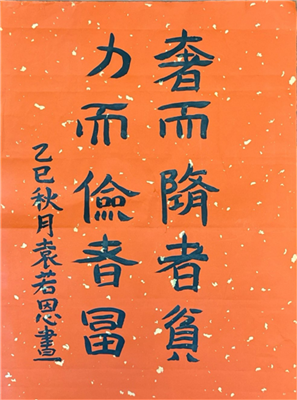 奢而隋者貧
力而儉者冨
乙巳秋月袁若恩畫